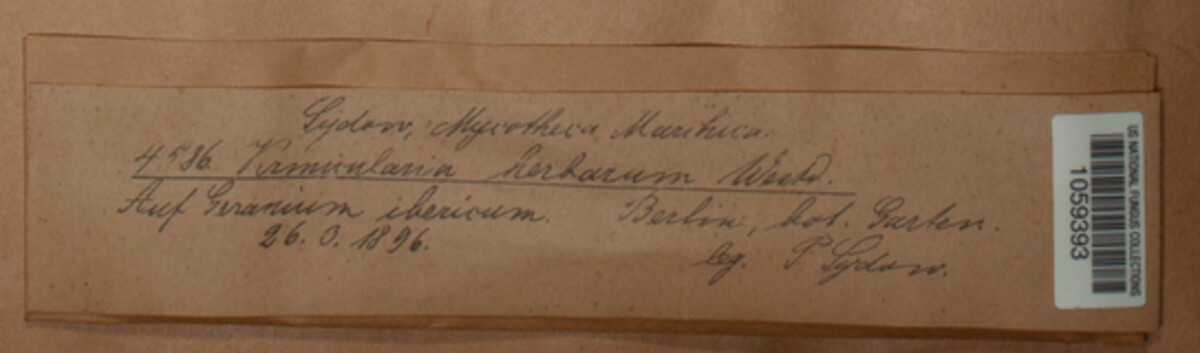 Sydow, Mycotheca Marchica.
4586. Vermicularia herbarum Westd.
Auf Geranium ibericum. Berlin, bot. Garten.
26. 3. 1896. leg. P. Sydow.
US NATIONAL FUNGUS COLLECTIONS
1059393